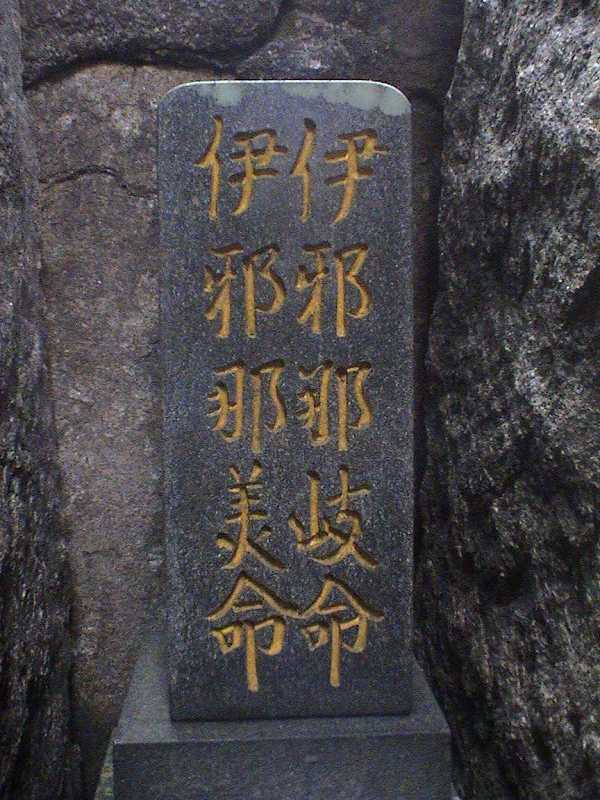 伊邪那岐命
伊邪那美命